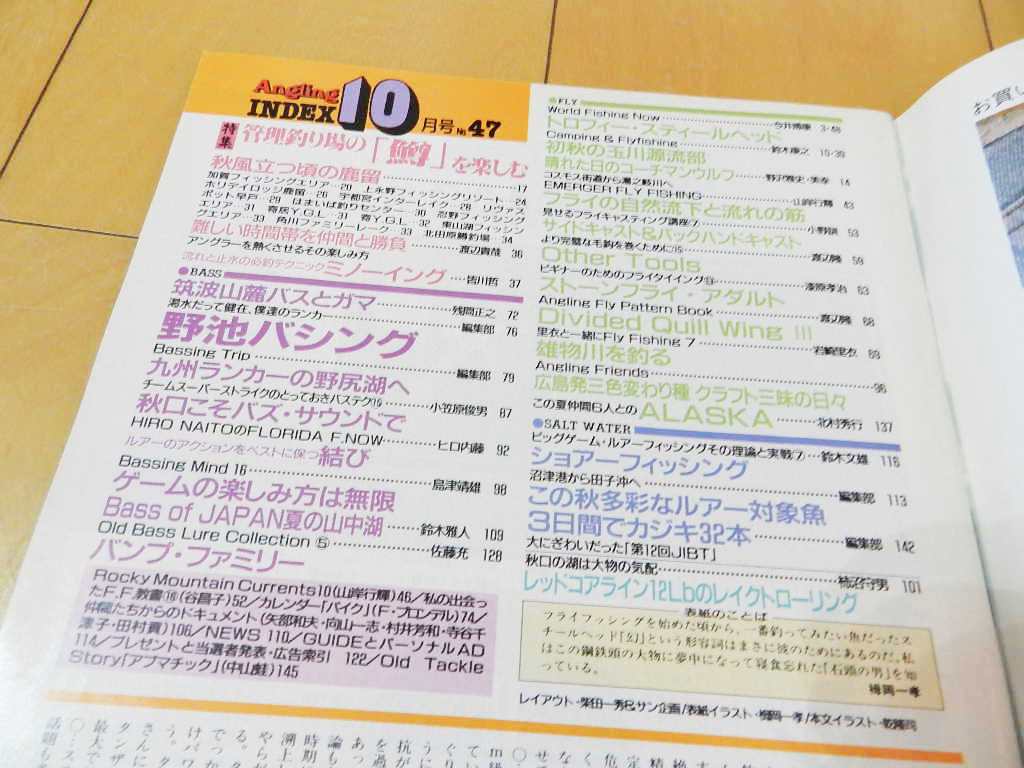 Angling
INDEX 10月号 No.47
特集 管理釣り場の「鱒」を楽しむ
秋風立つ頃の鹿留 17
加賀フィッシングエリア…20 上永野フィッシングリゾート…24
ホリデイロッジ鹿留…26 宇都宮インターレイク…28 リヴァス
ポット早戸…29 はまいば釣りセンター…30 忍野フィッシング
エリア…31 寄居Y.G.L.…31 寄Y.G.L.…32 東山湖フィッシン
グエリア…33 角川ファミリーレーク…33 北田原勝釣場…34
難しい時間帯を仲間と勝負 渡辺貴哉 36
アングラーを熱くさせるその楽しみ方
流れと止水の必釣テクニック ミノーイング 皆川哲 37
●BASS
筑波山麓バスとガマ 残間正之 72
渇水だって健在、僕達のランカー 編集部 76
野池バシング
Bassing Trip 編集部 79
九州ランカーの野尻湖へ
チームスーパーストライクのとっておきバステク⑯ 小笠原俊男 87
秋口こそバズ・サウンドで
HIRO NAITOのFLORIDA F.NOW ヒロ内藤 92
ルアーのアクションをベストに保つ結び
Bassing Mind 16 島津靖雄 98
ゲームの楽しみ方は無限
Bass of JAPAN夏の山中湖 鈴木雅人 109
Old Bass Lure Collection ⑤ 佐藤充 128
バンプ・ファミリー
Rocky Mountain Currents10(山岸行輝)46/私の出会っ
たF.F.教書⑯(谷昌子)52/カレンダー「バイク」(F・ブロンデル)74/
仲間たちからのドキュメント(矢部和夫・向山一志・村井芳和・寺谷千
津子・田村貢)106/NEWS 110/GUIDEとパーソナルAD
114/プレゼントと当選者発表・広告索引 122/Old Tackle
Story「アブマチック」(中山蛙)145
●FLY
World Fishing Now 今井博康 3・48
トロフィー・スティールヘッド
Camping & Flyfishing 鈴木康之 10・39
初秋の玉川源流部
晴れた日のコーチマンウルフ 野沢雅史・美幸 14
コスモス街道から瀬之野川へ
EMERGER FLY FISHING 山岸行輝 43
フライの自然流下と流れの筋
見せるフライキャスティング講座⑦ 小野訓 53
サイドキャスト&バックハンドキャスト
より完璧な毛鉤を巻くために⑮ 渡辺隆 59
Other Tools
ビギナーのためのフライタイイング⑬ 漆原孝治 63
ストーンフライ・アダルト
Angling Fly Pattern Book 渡辺隆 68
Divided Quill Wing III
里衣と一緒にFly Fishing 7 岩崎里衣 89
雄物川を釣る
Angling Friends 96
広島発三色変わり種 クラフト三昧の日々
この夏仲間6人とのALASKA 北村秀行 137
●SALT WATER
ビッグゲーム・ルアーフィッシングその理論と実戦⑦ 鈴木文雄 118
ショアーフィッシング
沼津港から田子沖へ 編集部 113
この秋多彩なルアー対象魚
3日間でカジキ32本 編集部 142
大にぎわいだった「第12回JIBT」
秋口の湖は大物の気配 柿沼守男 101
レッドコアライン12Lbのレイクトローリング
表紙のことば
フライフィッシングを始めた頃から、一番釣ってみたい魚だったス
チールヘッド。「幻」という形容詞はまさに彼のためにあるのだ。私
はこの鋼鉄頭の大物に夢中になって寝食忘れた「石頭の男」を知
っている。
楢岡一孝
レイアウト・柴田一秀&サン企画/表紙イラスト・楢岡一孝/本文イラスト・
お買い